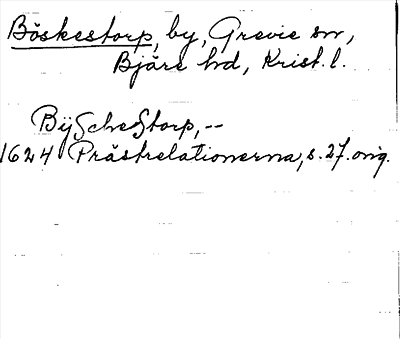 Böskestorp, by, Grevie sn,
Bjäre hd, Krist. l.
BijScheStorp, --
1624 Prästrelationerna, s. 27. orig.